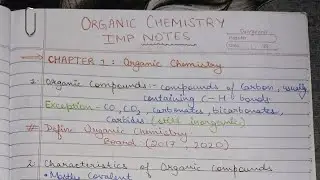 ORGANIC CHEMISTRY
IMP NOTES
CHAPTER 1 : Organic Chemistry
1. Organic Compounds :- compounds of carbon, usually
containing C-H bonds
Exception - CO, CO2, carbonates, bicarbonates,
carbides (still inorganic)
# Define Organic Chemistry
Board (2017, 2020)
2. Characteristics of Organic Compounds
• Mostly Covalent